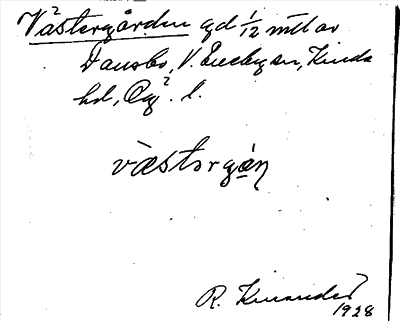 Västergården gd 1/12 mtl av
Dansbo, V. Eneby sn, Kinda
hd, Ög. l.
västərgo̲n
R. Kinander
1928